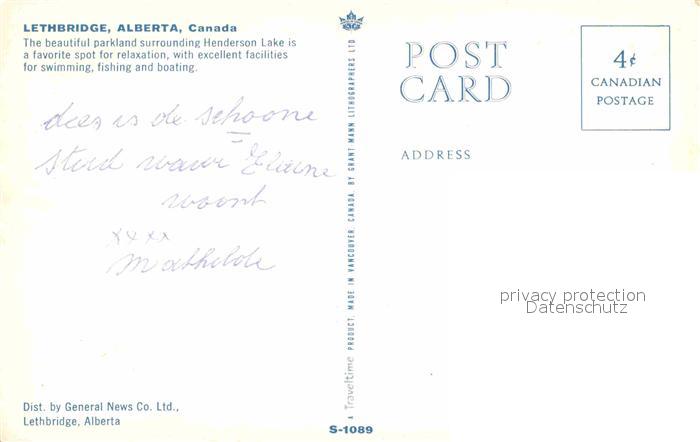 LETHBRIDGE, ALBERTA, Canada
The beautiful parkland surrounding Henderson Lake is
a favorite spot for relaxation, with excellent facilities
for swimming, fishing and boating.
dees is de schoone
stad waar Elaine
woont
xxxx
Mathilde
Dist. by General News Co. Ltd.,
Lethbridge, Alberta
A Traveltime PRODUCT, MADE IN VANCOUVER, CANADA, BY GRANT-MANN LITHOGRAPHERS LTD.
S-1089
POST
CARD
4¢
CANADIAN
POSTAGE
ADDRESS
privacy protection
Datenschutz